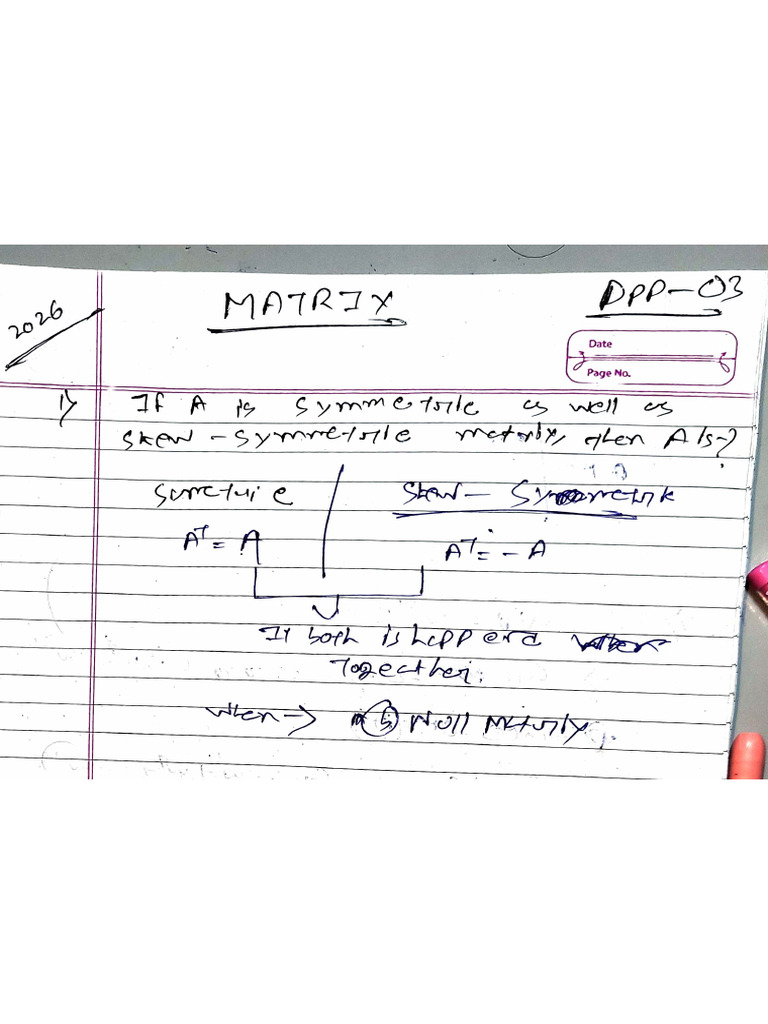 2026
MATRIX
DPP-03
Date
Page No.
1) If A is symmetric as well as
skew-symmetric matrix, then A is?
Skew-
Aᵀ = A
Aᵀ = - A
If both is
Together.
when → Null